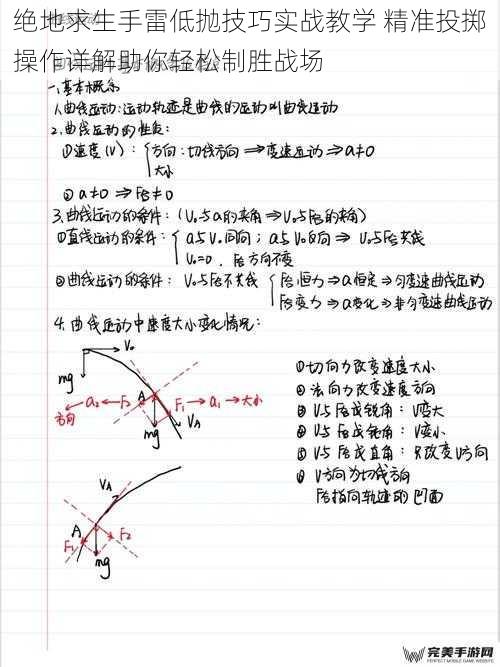 绝地求生手雷低抛技巧实战教学 精准投掷
操作详解助你轻松制胜战场
一、基本概念
1.曲线运动:运动轨迹是曲线的运动叫曲线运动
2.曲线运动的性质:
①速度(V): 方向:切线方向⇒变速运动⇒a≠0
大小
② a≠0⇒F合≠0
3.曲线运动的条件:(V₀与a的夹角⇒V₀与F合的夹角)
①直线运动的条件: a与V₀同向; a与V₀反向⇒V₀与F合共线
V₀=0, F合方向不变
②曲线运动的条件: V₀与F合不共线 F合恒力⇒a恒定⇒匀变速曲线运动
F合变力⇒a变化⇒非匀变速曲线运动
4.曲线运动中速度大小变化情况:
V₀
mg
方向 ← a₂ ← F₂ A F₁ → a₁ → 大小
mg VA
①切向力改变速度大小
②法向力改变速度方向
③ V与F合成锐角: V变大
④ V与F合成钝角: V变小
⑤ V与F合成直角: 只改变V方向
⑥ V方向为切线方向
F合指向轨迹的凹面
VA
A
F₁ F₂
mg
完美手游网
PERFECT MOBILE GAME WEBSITE